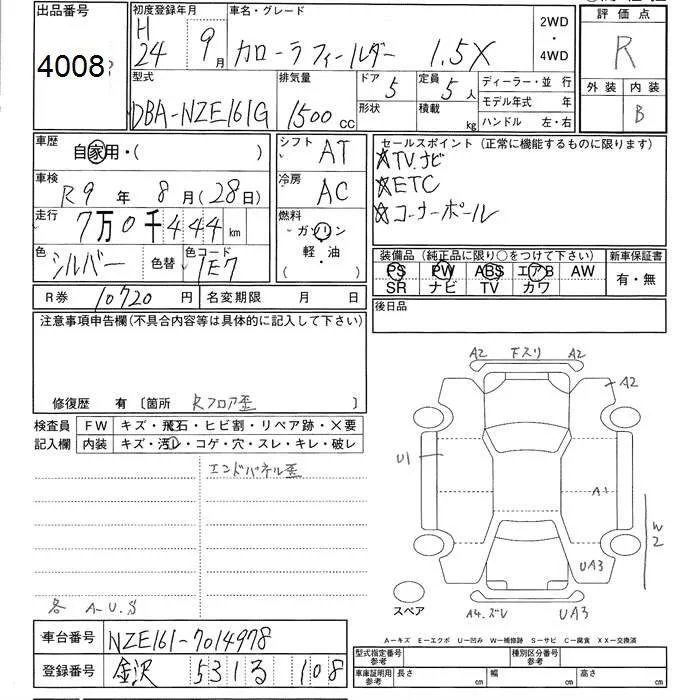 出品番号
4008
初度登録年月
H 24 9月
車名・グレード
カローラフィールダー 1.5X
2WD
・
4WD
評価点
R
外装 内装
B
型式
DBA-NZE161G
排気量
1500cc
ドア 5
形状
定員 5人
積載 kg
ディーラー・並 行
モデル年式 年
ハンドル 左・右
車歴
自家用・( )
車検
R9年 8月(28日)
走行
7万0千444km
色
シルバー
色替
色コード
1E7
シフト
AT
冷房
AC
燃料
ガソリン
軽・油
( )
セールスポイント(正常に機能するものに限ります)
☆TVナビ
☆ETC
☆コーナーポール
装備品(純正品に限り○をつけて下さい)
PS PW ABS エアB AW
SR ナビ TV カワ
新車保証書
有・無
R券 10720円
名変期限 月 日
後日品
注意事項申告欄(不具合内容等は具体的に記入して下さい)
修復歴 有 〔箇所 Rフロア歪 〕
検査員
記入欄
FW キズ・飛石・ヒビ割・リペア跡・×要
内装 キズ・汚レ・コゲ・穴・スレ・キレ・破レ
エンドパネル歪
各 A-U.S
A2 下スリ A2
A2
U1
A1
W2
UA3
スペア
A4.ズレ UA3
A–キズ E–エクボ U–凹み W–補修跡 S–サビ C–腐食 XX–交換済
車台番号
NZE161-7014978
登録番号
金沢 531 る 108
型式指定番号
参考
種別区分番号
参考
車庫証明用
参考
長さ cm
幅 cm
高さ cm